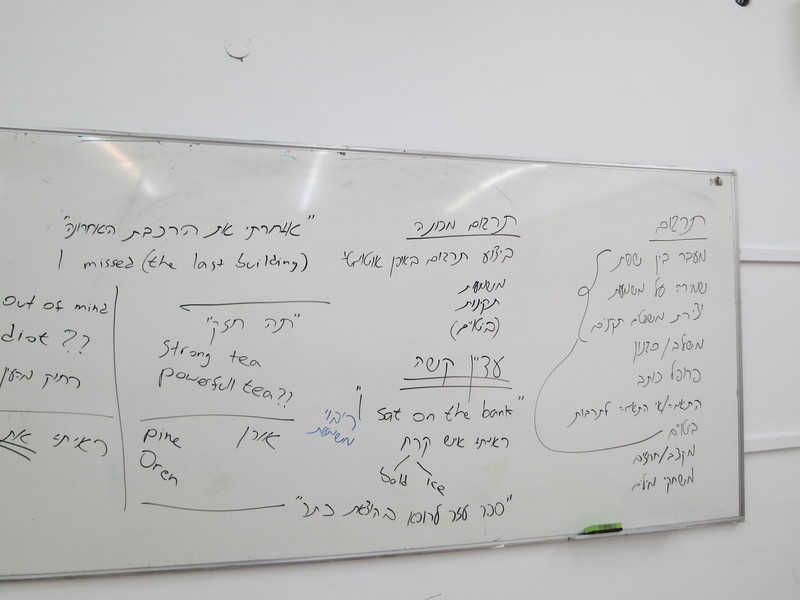 תרגום
מעבר בין שפות
שמירה על משמעות
יצירת משפטים תקינים
משלב/סגנון
פרופיל כותב
לתרבות
ביטויים
מקצב/חרוזים
משחקי מילים
תרגום מכונה
ביצוע תרגום באופן אוטומטי
משמעות
תקינות
(ביטויים)
עדיין קשה
"I sat on the bank"
ריבוי
משמעות
ראיתי איש קרח
bald ice
"ספר עזר לרופא בהוצאת כתר"
"איחרתי את הרכבת האחרונה"
I missed (the last building)
"תה חזק"
Strong tea
powerfull tea??
pine אורן
Oren
out of mind
diot ??
רחוק מהעין
ראיתי את